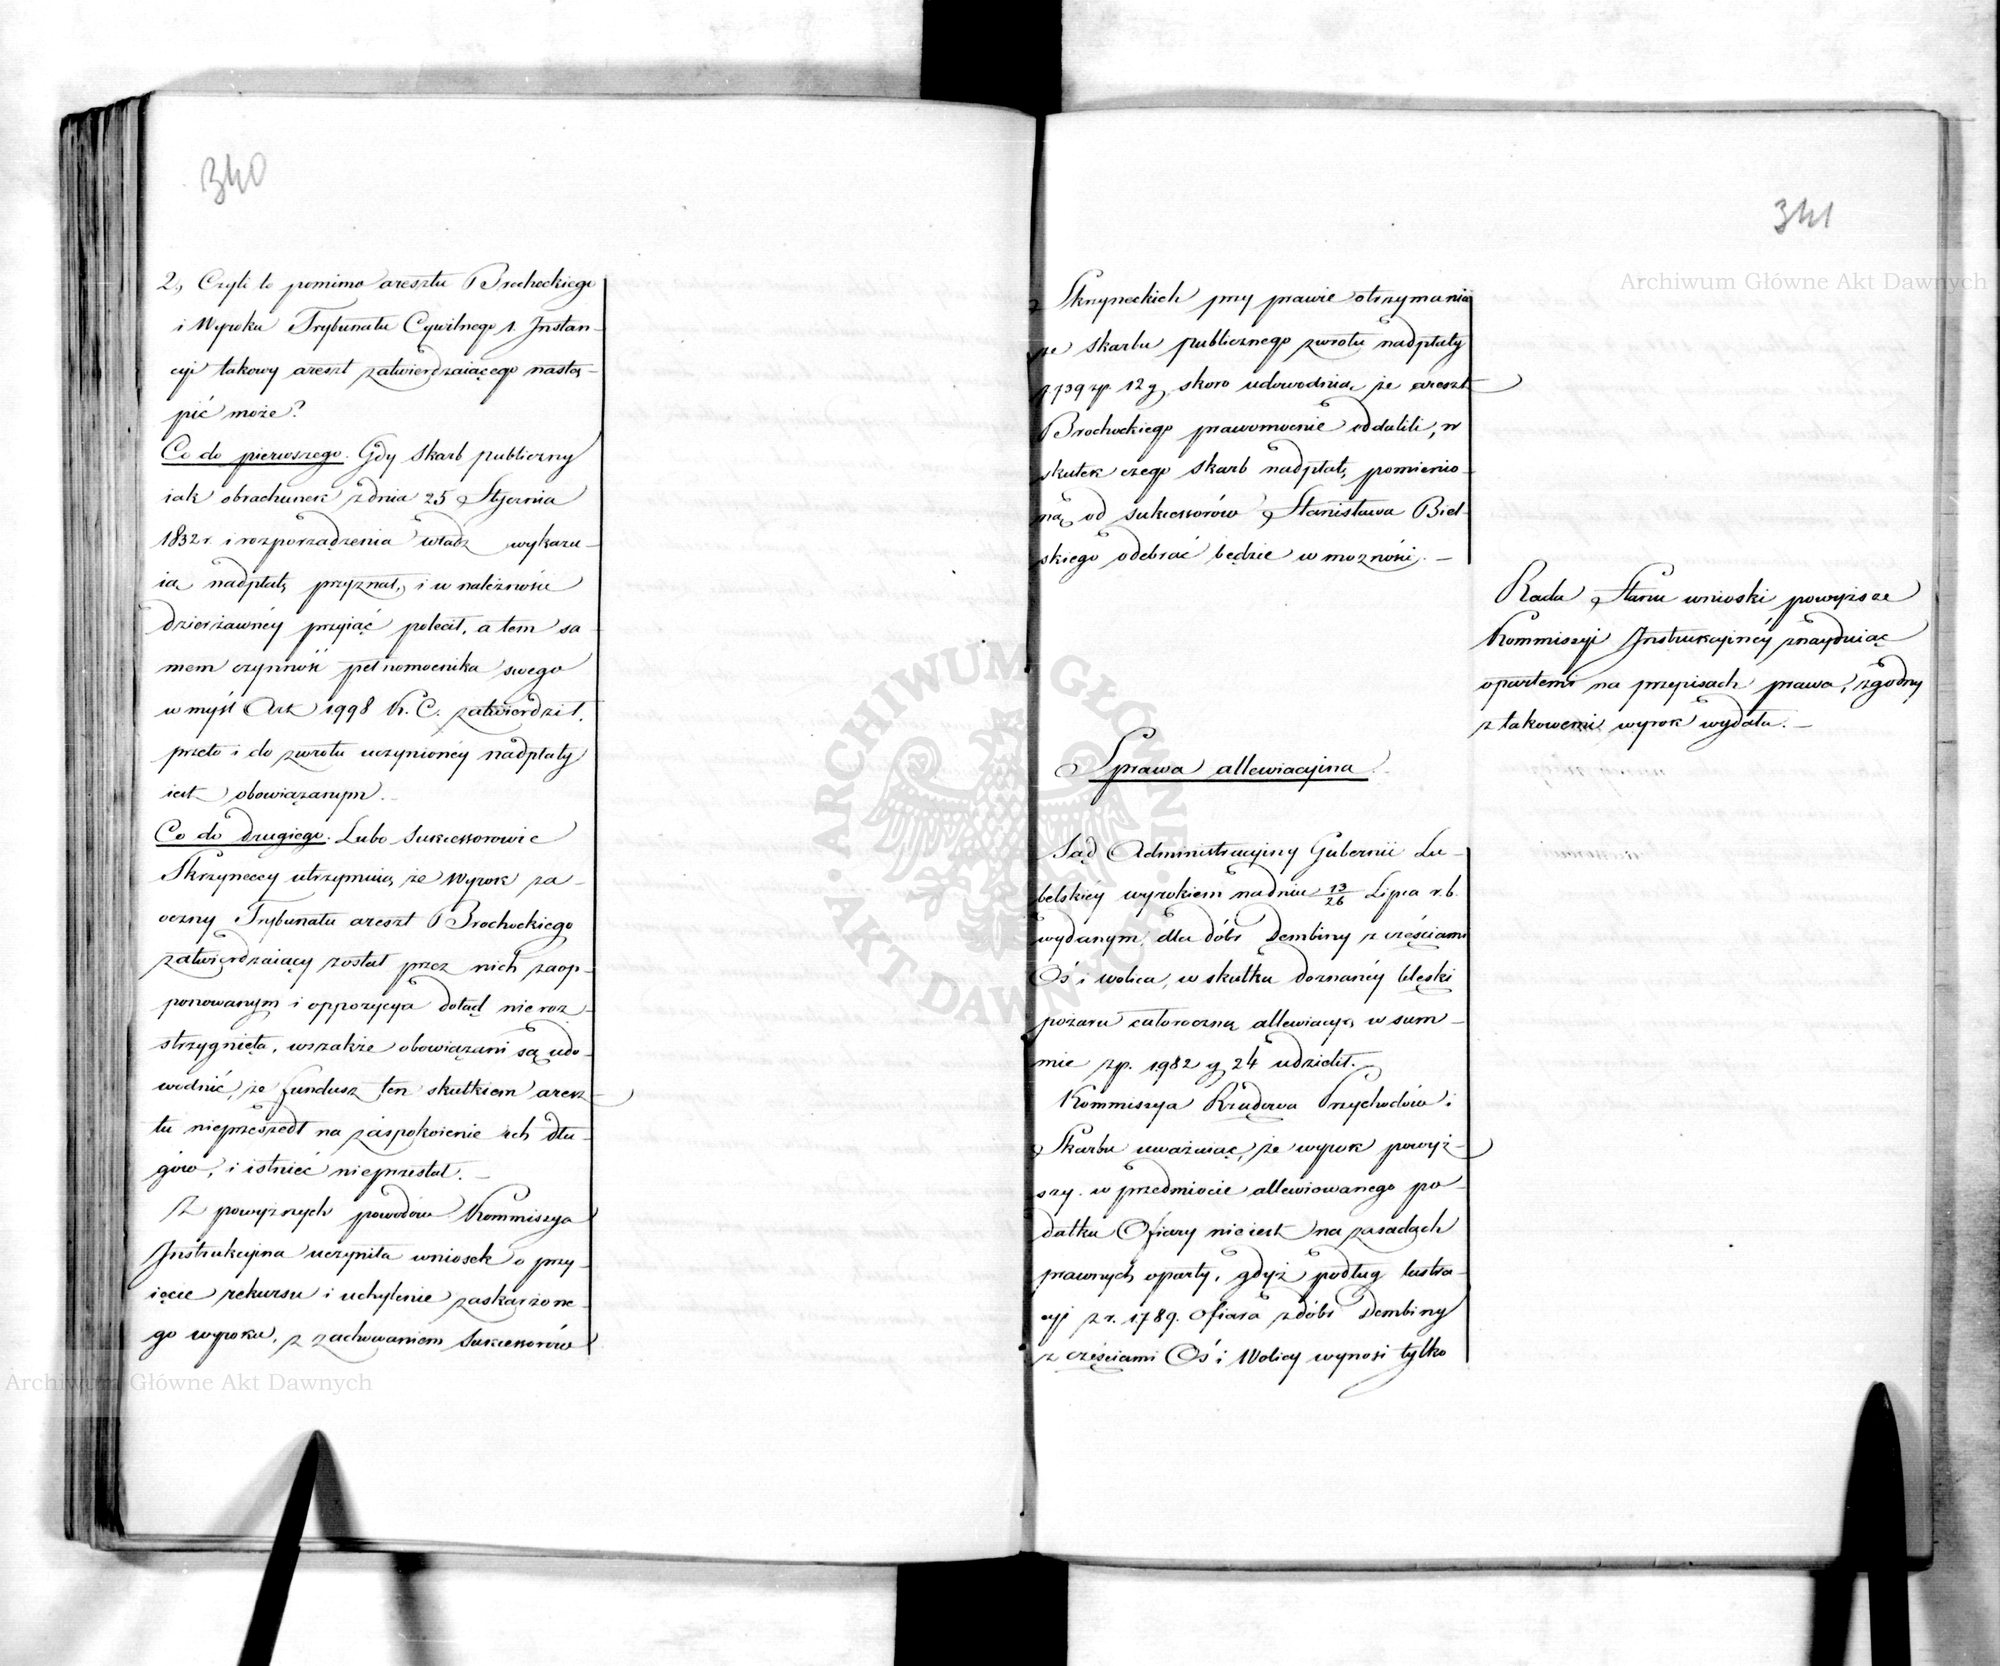 340
2, Czyli to pomimo aresztu Brochockiego
i Wyroku Trybunału Cywilnego 1. Instan-
cyi takowy areszt zatwierdzaiącego nastą-
pić może?
Co do pierwszego. Gdy Skarb publiczny
iak obrachunek z dnia 25 Stycznia
1832 r. i rozporządzenia władz wykazu-
ią nadpłatę przyznał, i w należność
dzierżawnéy przyiąć polecił, a tem sa-
mem czynność pełnomocnika swego
w myśl Art 1998 K. C. zatwierdził,
przeto i do zwrotu uczynionéy nadpłaty
iest obowiązanym.-
Co do drugiego. Lubo Sukcessorowie
Skrzyneccy utrzymuią, że Wyrok za-
oczny Trybunału areszt Brochockiego
zatwierdzaiący został przez nich zaop-
ponowanym i oppozycya dotąd nieroz-
strzygnięta, wszakże obowiązani są udo-
wodnić, że fundusz ten skutkiem aresz-
tu nieprzeszedł na zaspokoienie ich dłu-
gów, i istnieć nieprzestał.-
Z powyższych powodów Kommissya
Instrukcyina uczyniła wniosek o przy-
ięcie rekursu i uchylenie zaskarżone-
go wyroku, z zachowaniem Sukcessorów
341
Archiwum Główne Akt Dawnych
Skrzyneckich przy prawie otrzymania
ze skarbu publicznego zwrotu nadpłaty
zp. 12 g, skoro udowodnią, że areszt
Brochockiego prawomocnie oddalili, w
skutek czego Skarb nadpłatę pomienio-
ną od sukcessorów Stanisława Biel-
skiego odebrać będzie w możności.-
Rada Stanu wnioski powyższe
Kommissyi Instrukcyinéy znayduiąc
opartemi na przepisach prawa, zgodny
z takowemi wyrok wydała.-
Sprawa allewiacyina
Sąd Administracyiny Gubernii Lu-
belskiéy wyrokiem na dniu 13/26 Lipca r. b.
wydanym, dla dóbr Dembiny z częściami
Oś i Wolica, w skutku doznanéy klęski
pożaru całoroczną allewiacyą w sum-
mie zp. 1982 g 24 udzielił.
Kommissya Rządowa Przychodów i
Skarbu uważaiąc, że wyrok powyż-
szy w przedmiocie allewiowanego po-
datku Ofiary nieiest na zasadach
prawnych oparty, gdyż podług lustra-
cyi z r. 1789. Ofiara z dóbr Dembiny
z częściami Oś i Wolicy wynosi tylko
ARCHIWUM GŁÓWNE AKT DAWNYCH
Archiwum Główne Akt Dawnych